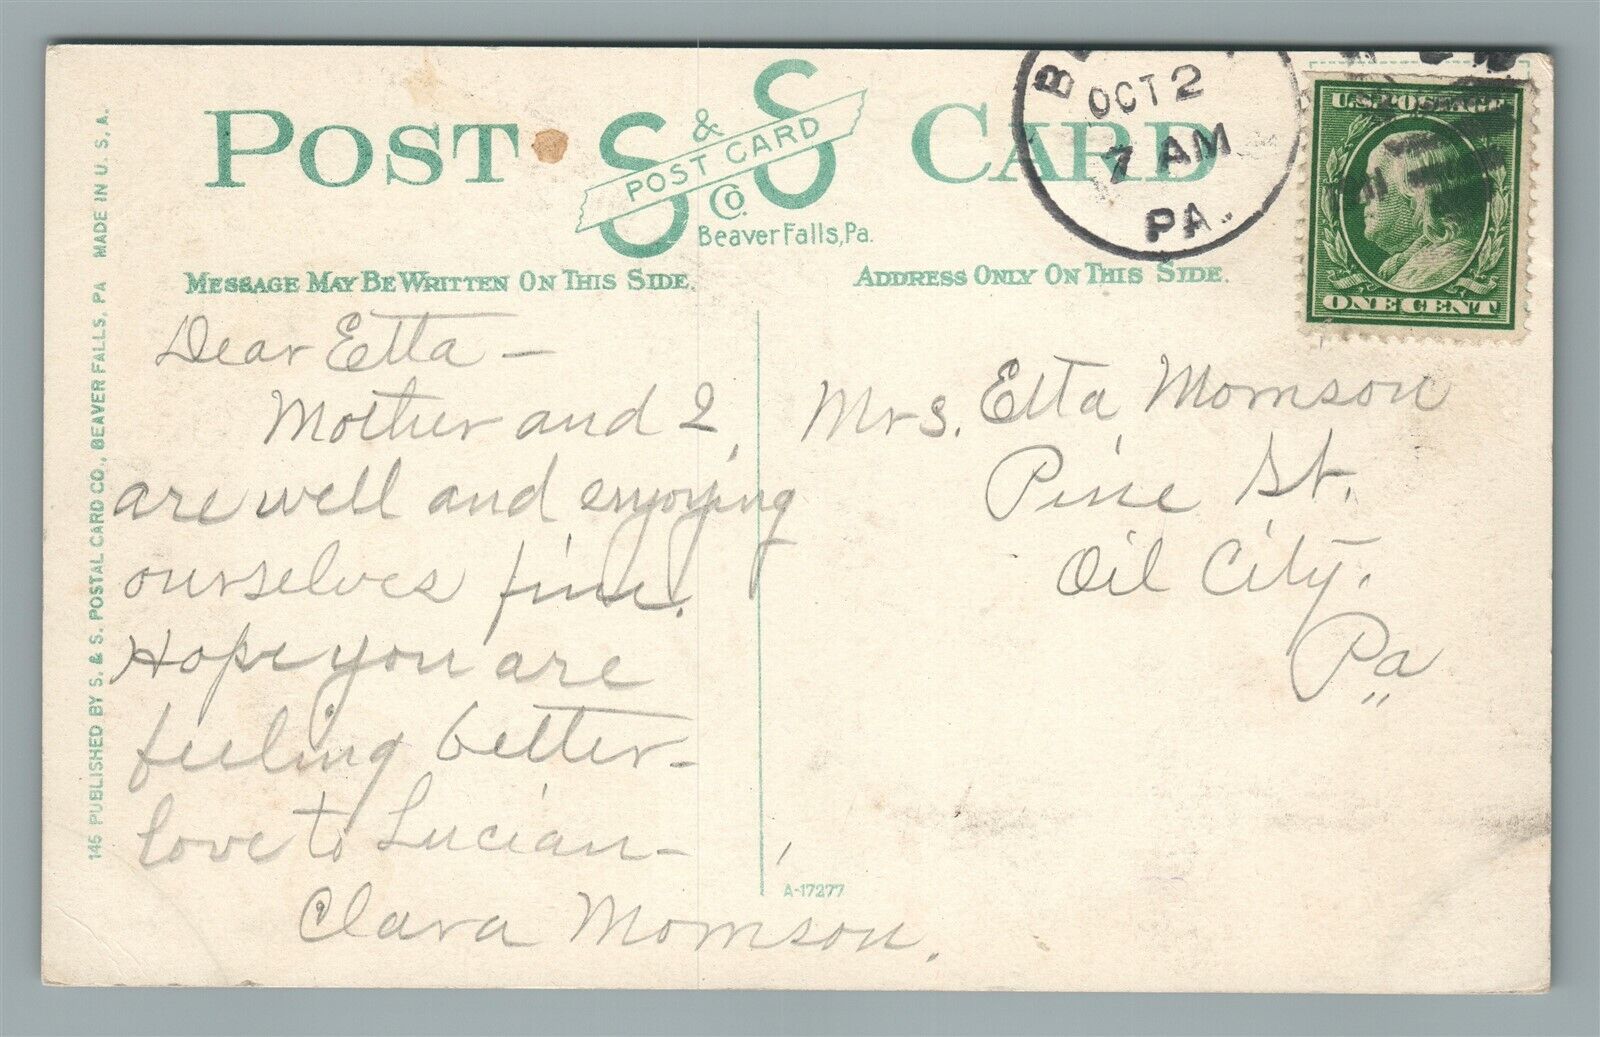 POST CARD
S & S
POST CARD
Co.
Beaver Falls, Pa.
MESSAGE MAY BE WRITTEN ON THIS SIDE.
ADDRESS ONLY ON THIS SIDE.
OCT 2
7 AM
PA.
U.S. POSTAGE
ONE CENT
145 PUBLISHED BY S. & S. POSTAL CARD CO., BEAVER FALLS, PA MADE IN U. S. A.
Dear Etta –
Mother and I
are well and enjoying
ourselves fine.
Hope you are
feeling better –
love to Lucian –
Clara Momson.
Mrs. Etta Momson
Pine St.
Oil City,
Pa
A-17277